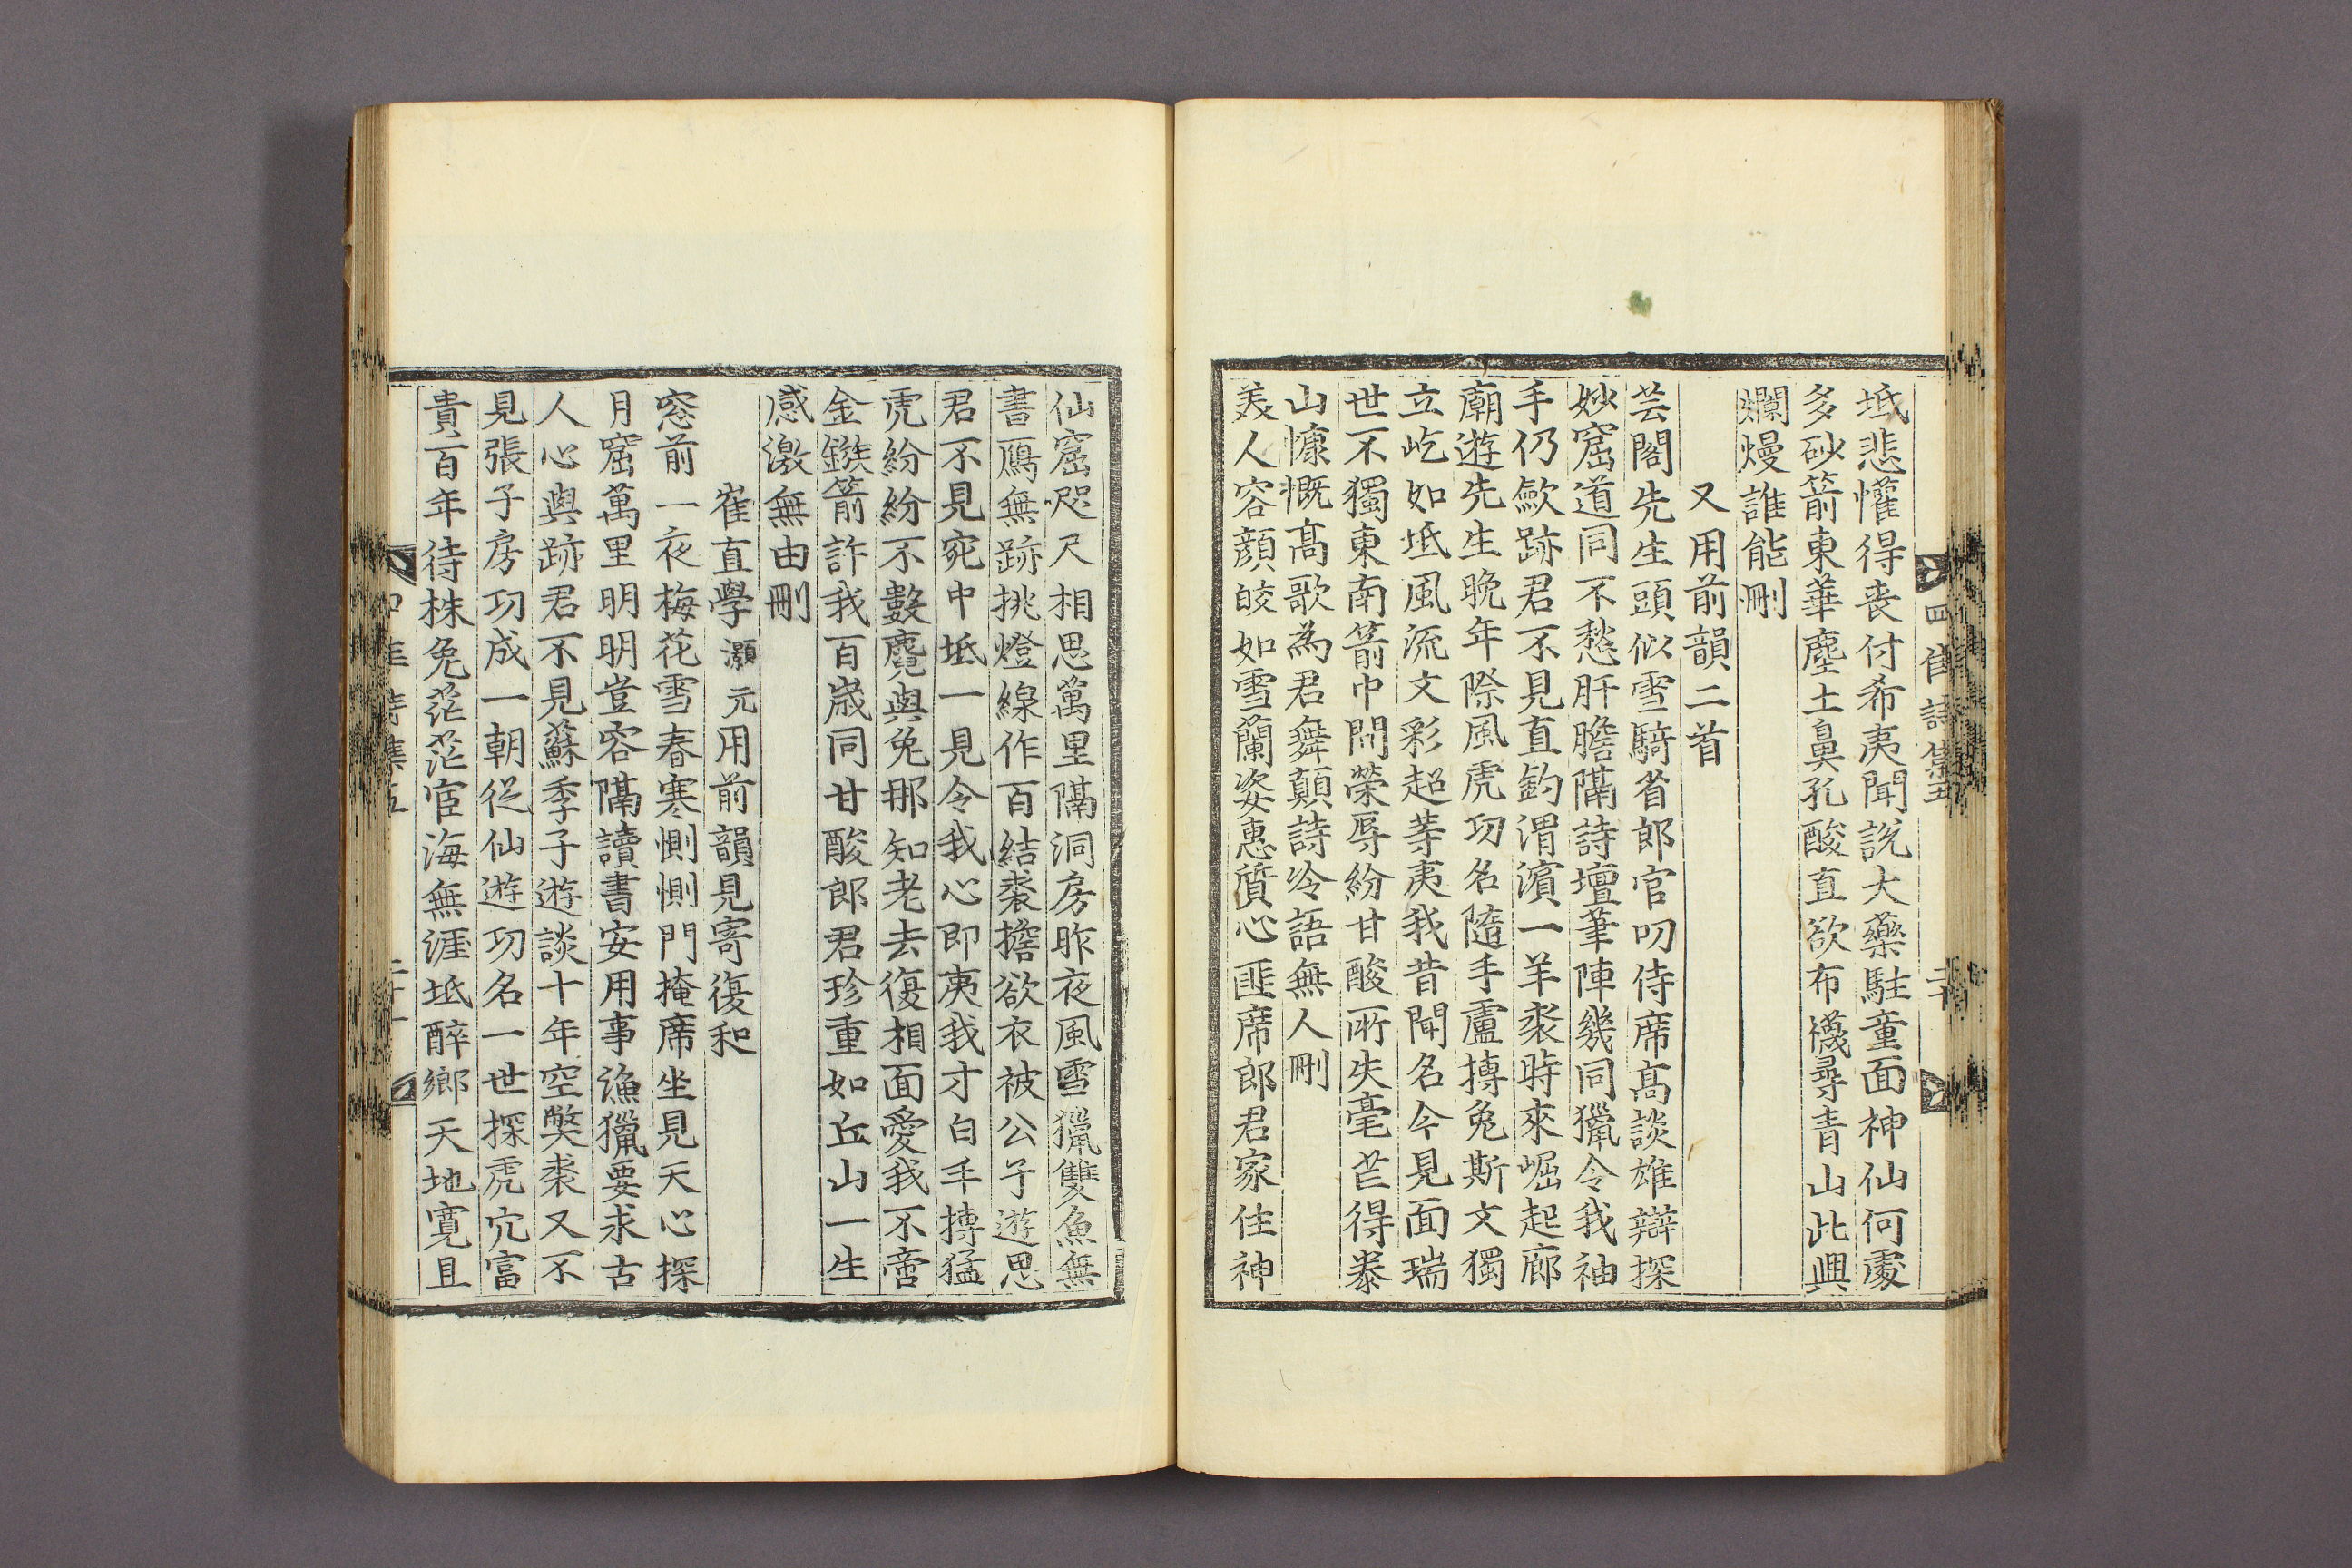 坻悲懽得丧付希夷聞說大藥駐童面神仙何處
多砂箭東華塵土鼻孔酸直欲布襪尋青山此興
爛熳誰能刪
又用前韻二首
芸閣先生頭似雪騎省郎官叨侍席髙談雄辯探
妙窟道同不愁肝膽隔詩壇筆陣幾同獵令我袖
手仍歛跡君不見直鈞渭濱一羊裘時來崛起廊
廟遊先生晩年際風虎功名隨手盧搏兔斯文獨
立屹如坻風流文彩超等夷我昔聞名今見面瑞
世不獨東南箭中間榮辱紛甘酸所失毫芒得泰
山慷慨髙歌為君舞顛詩冷語無人刪
美人容顏皎如雪蘭姿惠質心匪席郎君家住神
仙窟咫尺相思萬里隔洞房昨夜風雪獵雙魚無
書鴈無跡挑燈線作百結裘擔欲衣被公子遊思
君不見宛中坻一見令我心即夷我才白手搏猛
虎紛紛不數麑與兔那知老去復相面愛我不啻
金鏃箭許我百歲同甘酸郎君珍重如丘山一生
感激無由刪
崔直學灝元用前韻見寄復和
窓前一夜梅花雪春寒惻惻門掩席坐見天心探
月窟萬里明明豈容隔讀書安用事漁獵要求古
人心與跡君不見蘇季子遊談十年空獘裘又不
見張子房功成一朝從仙遊功名一世探虎穴富
貴百年待株兔茫茫宦海無涯坻醉鄉天地寬且